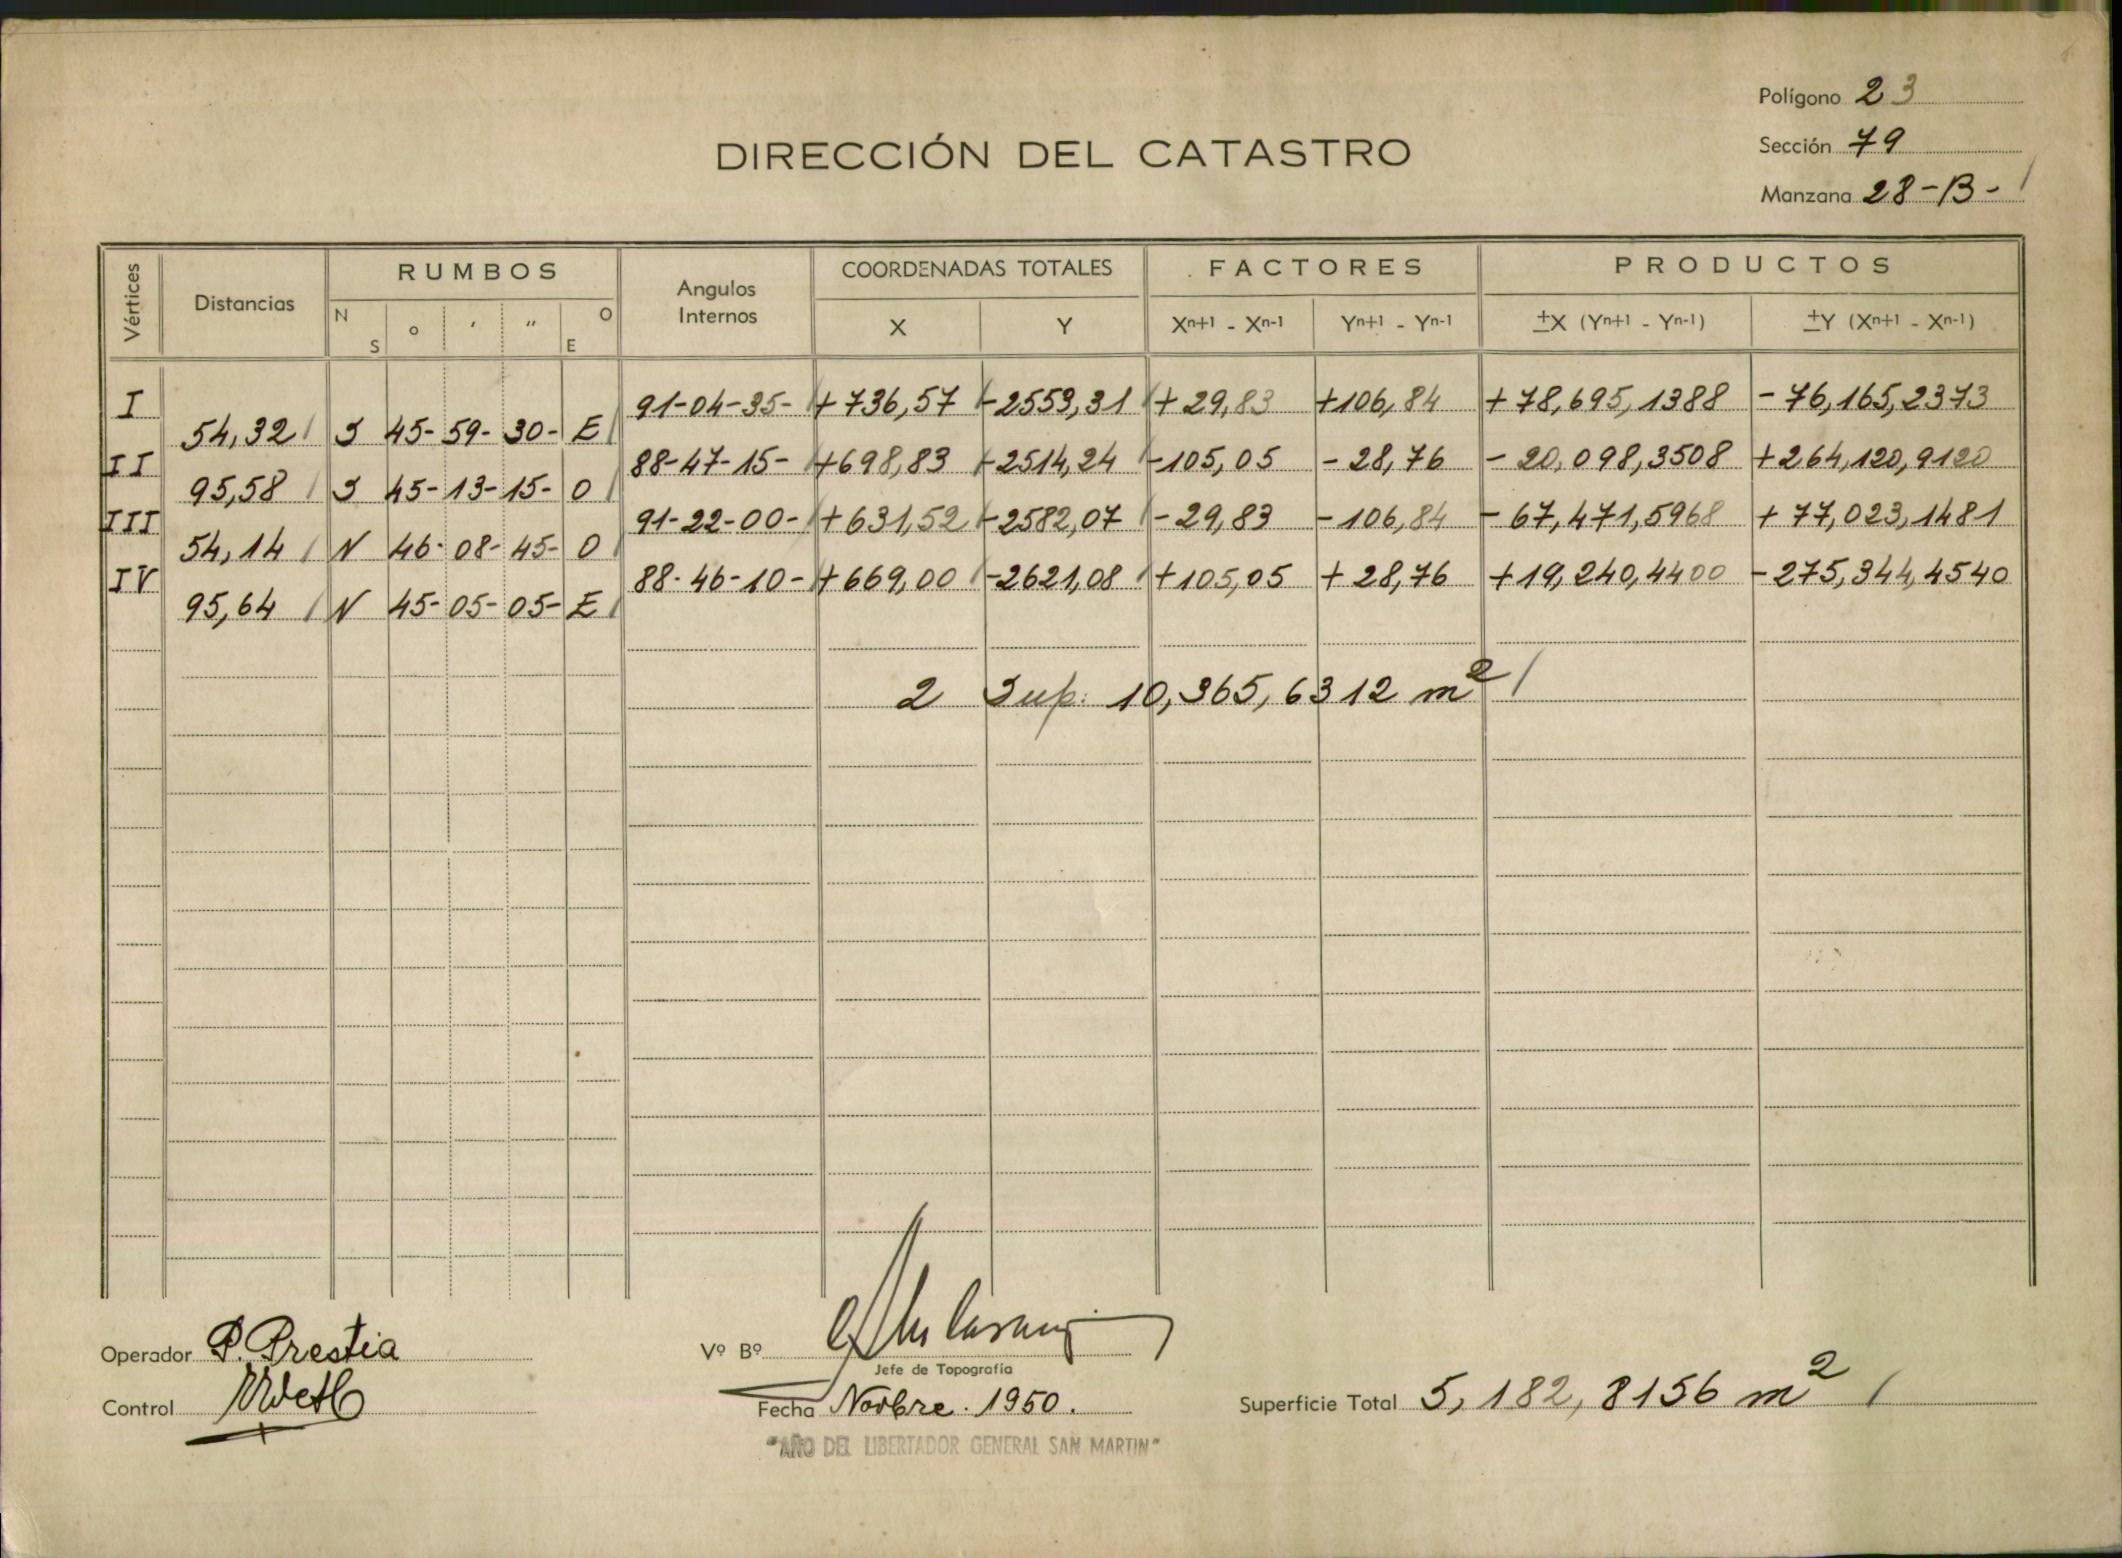 Polígono 23
Sección 79
DIRECCIÓN DEL CATASTRO
Manzana 28-B-
Vértices Distancias RUMBOS Angulos Internos COORDENADAS TOTALES FACTORES PRODUCTOS
N S ° ' " O E X Y Xn+1 - Xn-1 Yn+1 - Yn-1 ±X (Yn+1 - Yn-1) ±Y (Xn+1 - Xn-1)
I 91-04-35- +736,57 -2553,31 +29,83 +106,84 +78,695,1388 -76,165,2373
54,32 S 45- 59- 30- E
II 88-47-15- +698,83 -2514,24 -105,05 -28,76 -20,098,3508 +264,120,9120
95,58 S 45- 13- 15- O
III 91-22-00- +631,52 -2582,07 -29,83 -106,84 -67,471,5968 +77,023,1481
54,14 N 46- 08- 45- O
IV 88-46-10- +669,00 -2621,08 +105,05 +28,76 +19,240,4400 -275,344,4540
95,64 N 45- 05- 05- E
2 Sup. 10,365,6312 m2
Operador P. Prestia
Vº Bº
Jefe de Topografía
Control
Fecha Novbre. 1950.
Superficie Total 5,182,8156 m2
"AÑO DEL LIBERTADOR GENERAL SAN MARTIN"